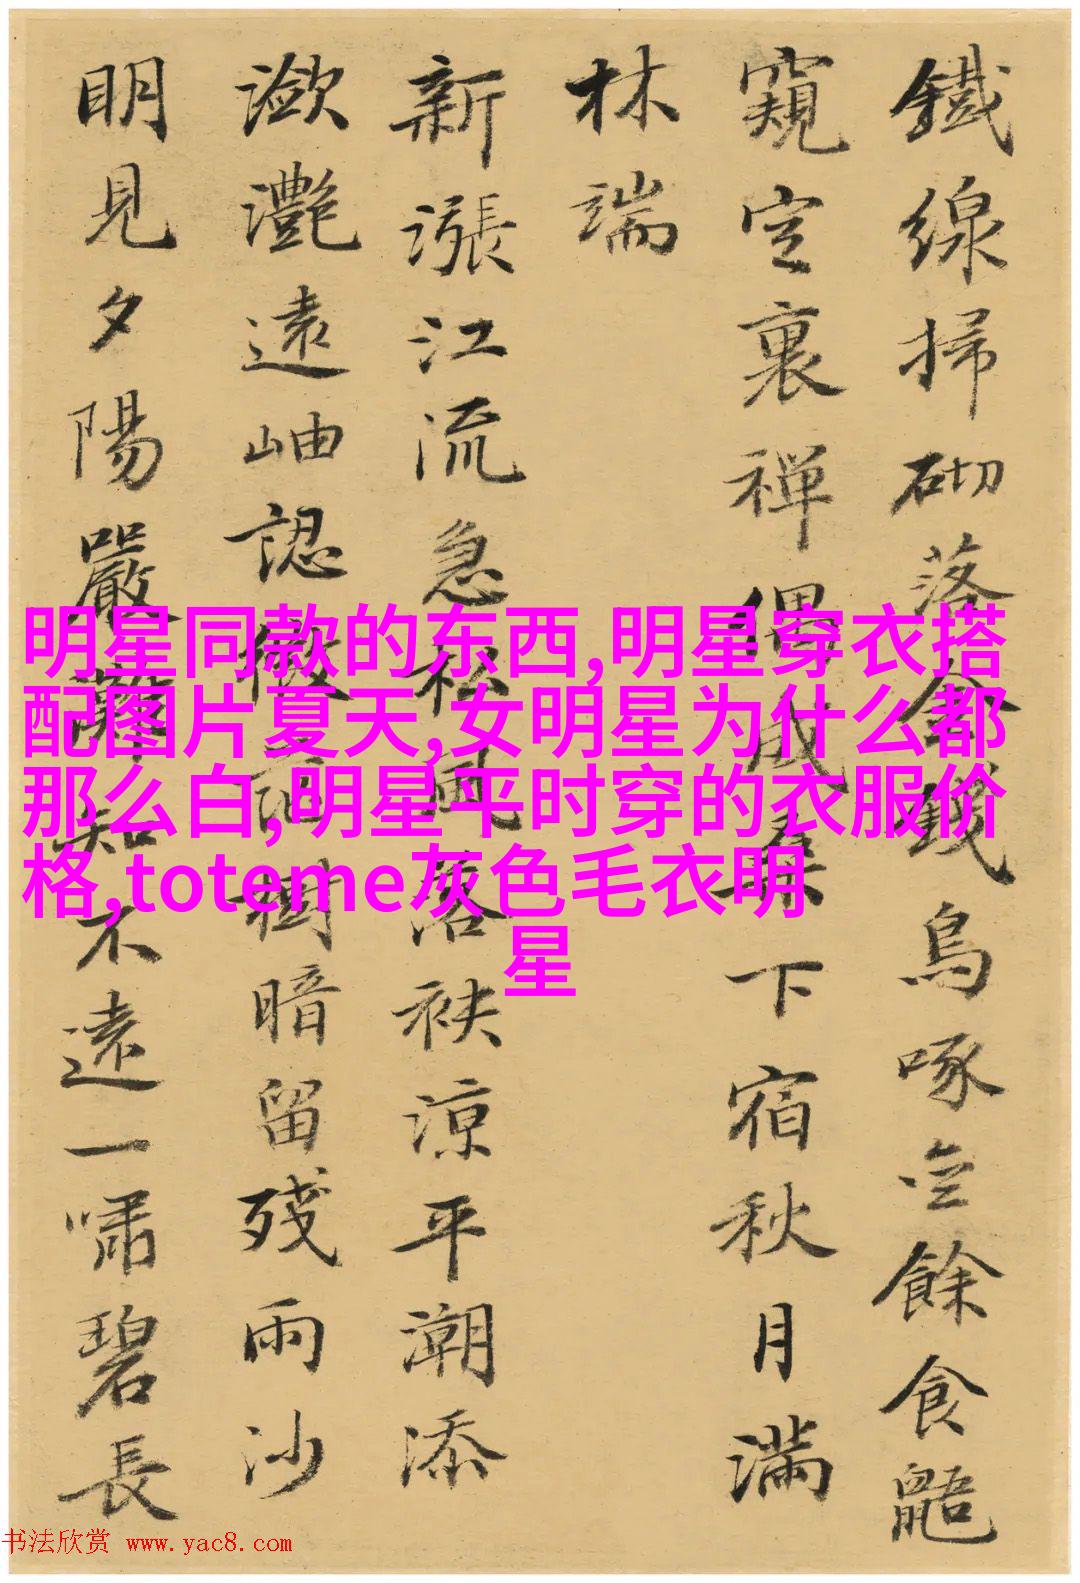 鐵線掃砌落金錢烏啄空餘食鼯
窺定裏禅偶成羣下宿秋月满
林端
新漲江流急松風落袂涼平潮添
潋灧遠岫認微茫樹暗留殘雨沙
明見夕陽嚴灘知不遠一嘯碧長
明星同款的东西,明星穿衣搭
配图片夏天,女明星为什么都
那么白,明星平时穿的衣服价
格,toteme灰色毛衣明
星
书法欣赏 www.yac8.com